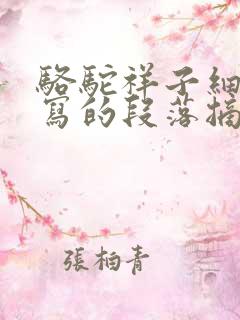 駱駝祥子細
寫的段落摘
張柏青